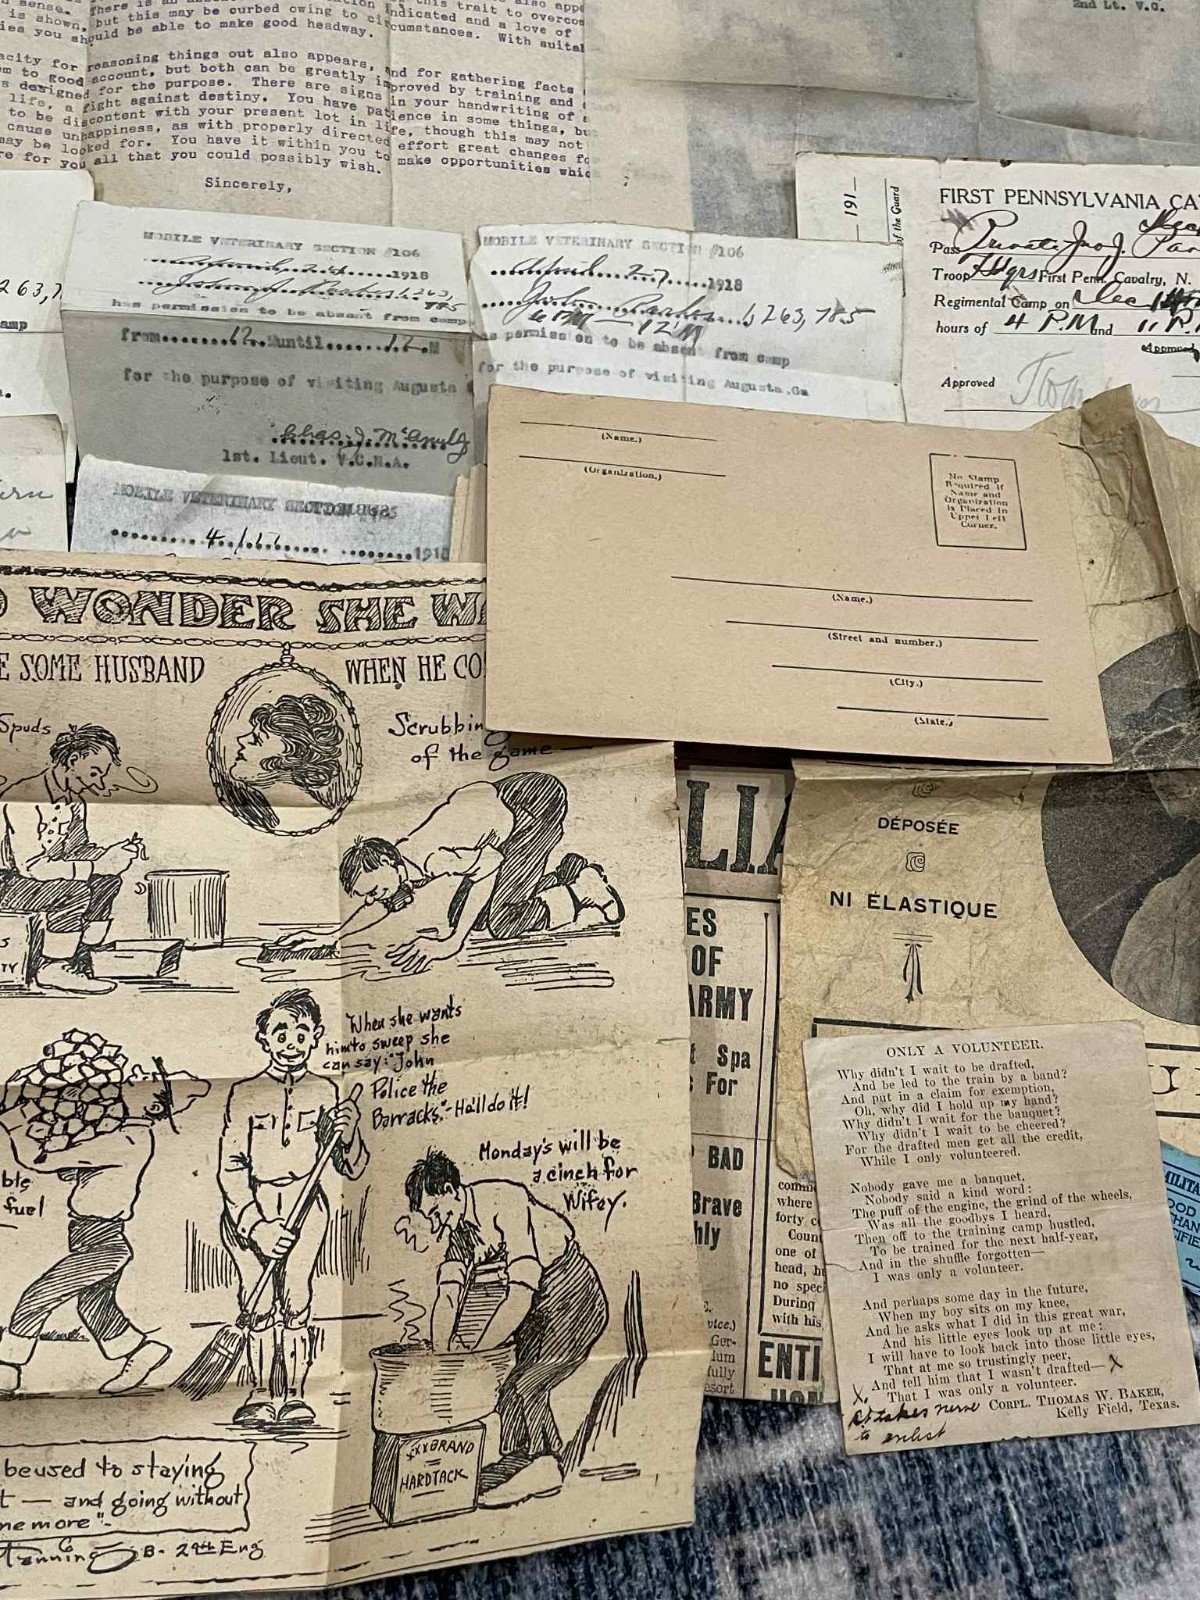 sense. There is an
is shown, but this may be curbed owing to circumstances. With suitab
this trait to overcom
indicated and a love of
ies you should be able to make good headway.
acity for reasoning things out also appears, and for gathering facts
em to good account, but both can be greatly improved by training and
s designed for the purpose. There are signs in your handwriting of
life, a fight against destiny. You have patience in some things, bu
to be discontent with your present lot in life, though this may not
cause unhappiness, as with properly directed effort great changes fo
may be looked for. You have it within you to make opportunities whic
re for you all that you could possibly wish.
Sincerely,
2nd Lt. V.C.
263,7
amp
MOBILE VETERINARY SECTION #106
1918
263,
785
has permission to be absent from camp
from........12..Muntil.......12.M
for the purpose of visiting Augusta
Chas. J. McAnulg
1st. Lieut. V.C.N.A.
MOBILE VETERINARY SECTION #106
April 27 1918
John Parker 1,263,785
6 PM — 12 M
as permission to be absent from camp
for the purpose of visiting Augusta.Ga
191
of the Guard
FIRST PENNSYLVANIA CA
Pass Private Jno J. Par
Troop Hdqrs First Penn. Cavalry, N.
Regimental Camp on Dec
hours of 4 P.M and 11 P.
Approved
Approved
MOBILE VETERINARY SECTION
4 1918
(Name.)
(Organization.)
No Stamp
Required if
Name and
Organization
is Placed in
Upper Left
Corner.
(Name.)
(Street and number.)
(City.)
(State.)
O WONDER SHE W
E SOME HUSBAND
WHEN HE CO
Spuds
Scrubbin
of the game —
S
TY
When she wants
him to sweep she
can say: "John
Police the
Barracks"- He'll do it!
ble
fuel
Monday's will be
a cinch for
Wifey.
XXX BRAND
=
HARDTACK
beused to staying
t — and going without
ne more".
B- 29th Eng
LIA
ES
OF
ARMY
t Spa
s For
BAD
Brave
hly
E.
vice.)
Ger-
lum
fully
esort
comm
where
forty c
Coun
one of
head, h
no spec
During
with his
ENTI
HON
DÉPOSÉE
NI ÉLASTIQUE
MILITA
OOD
CHAN
CIFIE
ONLY A VOLUNTEER.
Why didn't I wait to be drafted,
And be led to the train by a band?
And put in a claim for exemption,
Oh, why did I hold up my hand?
Why didn't I wait for the banquet?
Why didn't I wait to be cheered?
For the drafted men get all the credit,
While I only volunteered.
Nobody gave me a banquet,
Nobody said a kind word:
The puff of the engine, the grind of the wheels,
Was all the goodby I heard,
Then off to the training camp hustled,
To be trained for the next half-year,
And in the shuffle forgotten—
I was only a volunteer.
And perhaps some day in the future,
When my boy sits on my knee,
And he asks what I did in this great war,
And his little eyes look up at me:
I will have to look back into those little eyes,
That at me so trustingly peer,
And tell him that I wasn't drafted— X
X That I was only a volunteer.
CORPL. THOMAS W. BAKER,
Kelly Field, Texas.
It takes nerve
to enlist